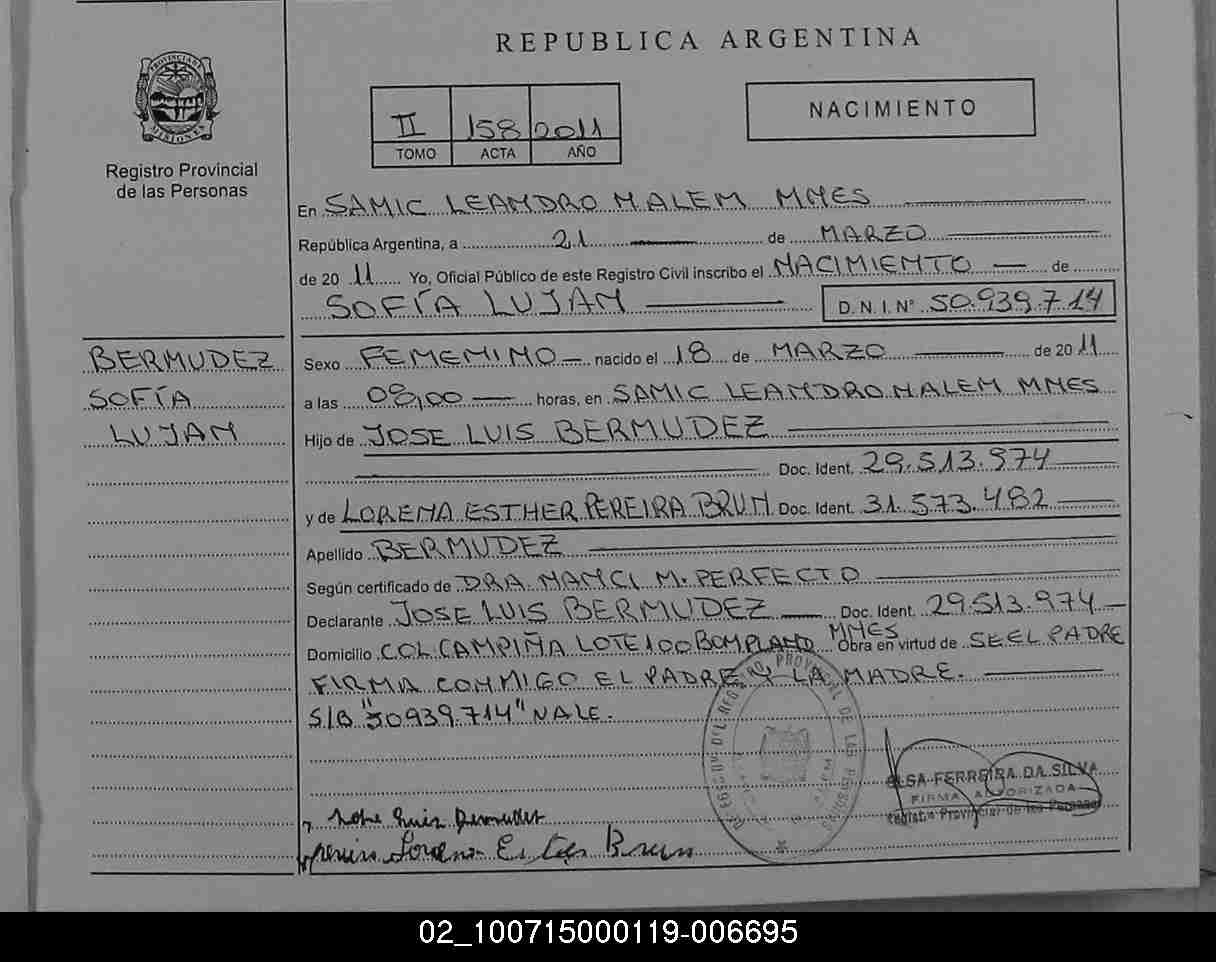 REPUBLICA ARGENTINA
PROVINCIA DE MISIONES
Registro Provincial
de las Personas
II 158 2011
TOMO ACTA AÑO
NACIMIENTO
En SAMIC LEANDRO N ALEM MNES
República Argentina, a 21 de MARZO
de 20 11 Yo, Oficial Público de este Registro Civil inscribo el NACIMIENTO de
SOFÍA LUJAN D. N. I. N° 50.939.714
BERMUDEZ
SOFÍA
LUJAN
Sexo FEMENINO nacido el 18 de MARZO de 20 11
a las 08,00 horas, en SAMIC LEANDRO N ALEM MNES
Hijo de JOSE LUIS BERMUDEZ
Doc. Ident. 29.513.974
y de LORENA ESTHER PEREIRA BRUN Doc. Ident. 31.573.482
Apellido BERMUDEZ
Según certificado de DRA. NANCI M. PERFECTO
Declarante JOSE LUIS BERMUDEZ Doc. Ident. 29.513.974
Domicilio COL CAMPIÑA LOTE 100 BOMPLAND MNES Obra en virtud de SE EL PADRE
FIRMA CONMIGO EL PADRE Y LA MADRE.
S/B "50939.714" VALE.
ELSA FERREIRA DA SILVA
FIRMA AUTORIZADA
Registro Provincial de las Personas
Jose Luis Bermudez
Pereira Lorena Ester Brun
02_100715000119-006695